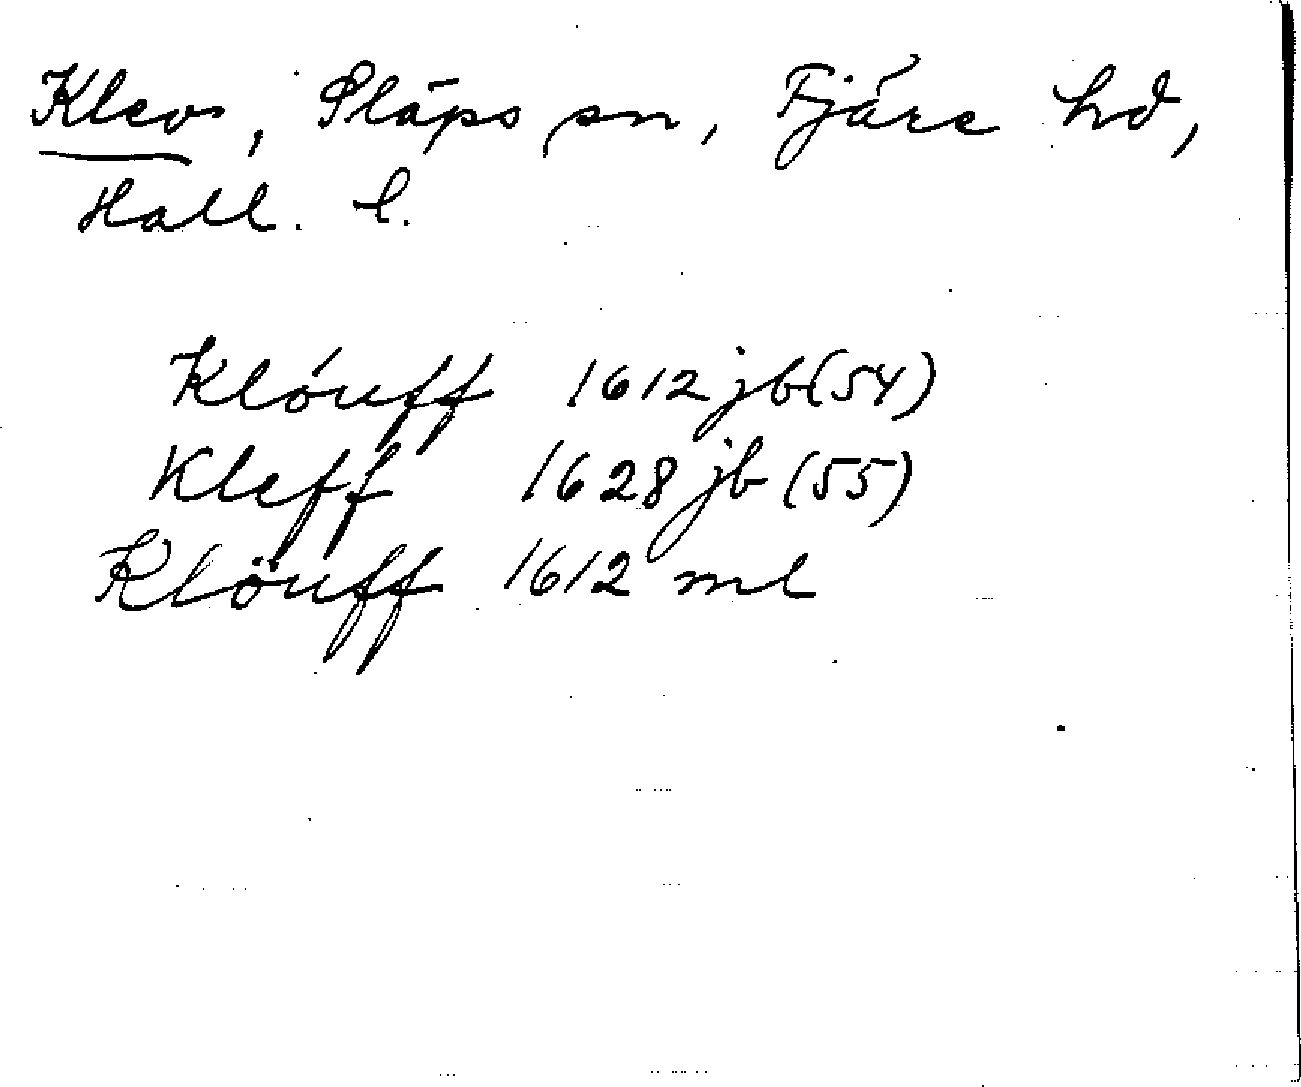 Klev, Släps sn, Fjäre hd,
Hall. l.
Klóuff 1612 jb (54)
Kleff 1628 jb (55)
Klöuff 1612 ml